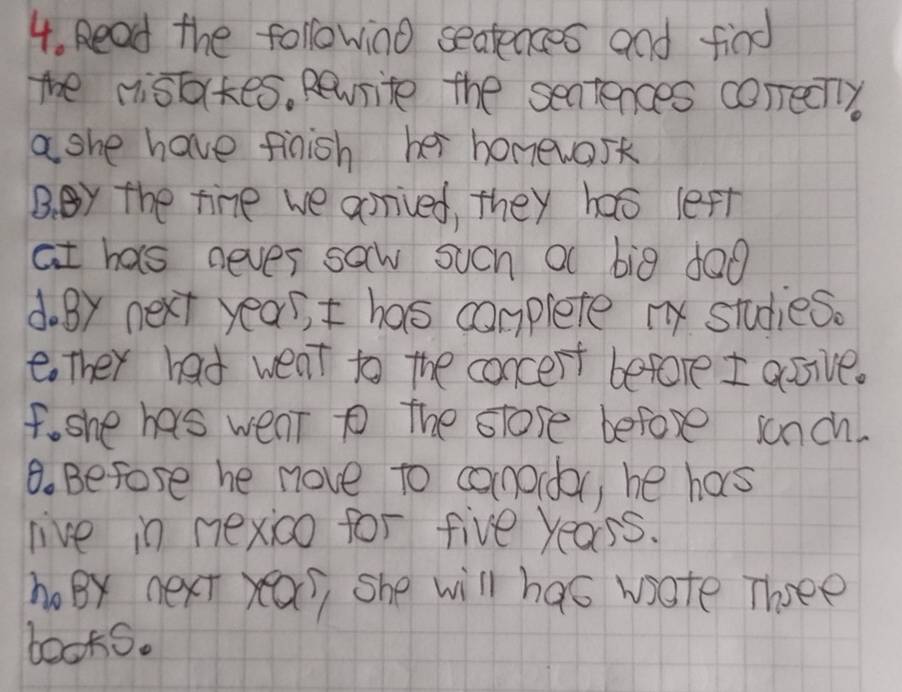 4. Read the following sentences and find
the mistakes. Rewrite the sentences correctly.
a. she have finish her homework
B. By the time we arrived, they has left
C. I has never saw such a big dog
d. By next year, I has complete my studies.
e. They had went to the concert before I arrive.
f. she has went to the store before lunch.
g. Before he move to canada, he has
live in mexico for five years.
h. By next year, she will has wrote Three
books.